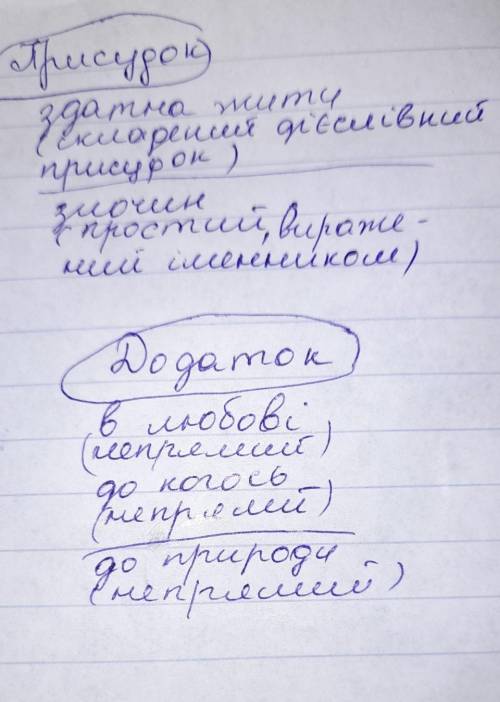 Присудок
здатна жити
(складений дієслівний
присудок)
злочин
(простий, вираже-
ний іменником)
Додаток
в любові
(непрямий)
до когось
(непрямий)
до природи
(непрямий)